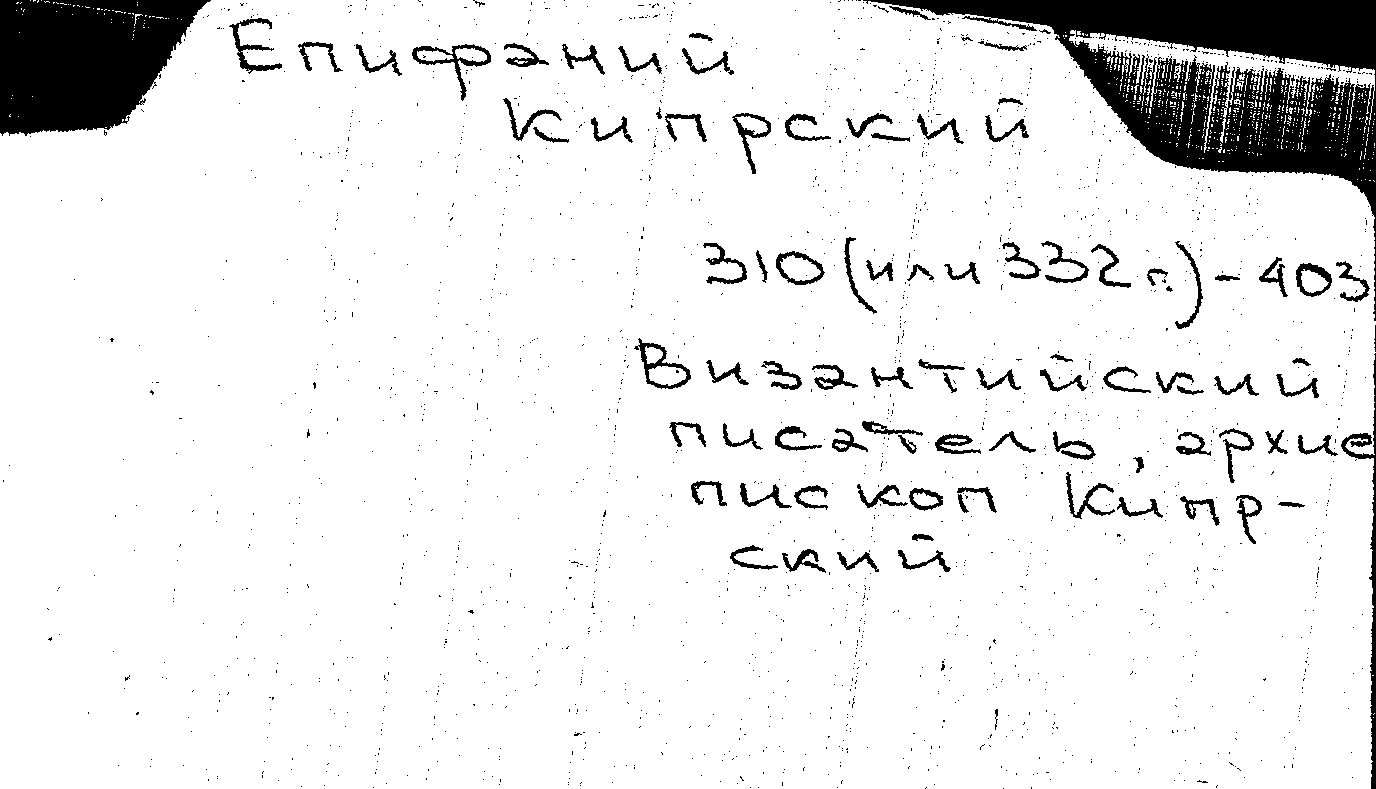 Епифаний
Кипрский
310 (или 332 г.) - 403
Византийский
писатель, архие
пископ Кипр-
ский